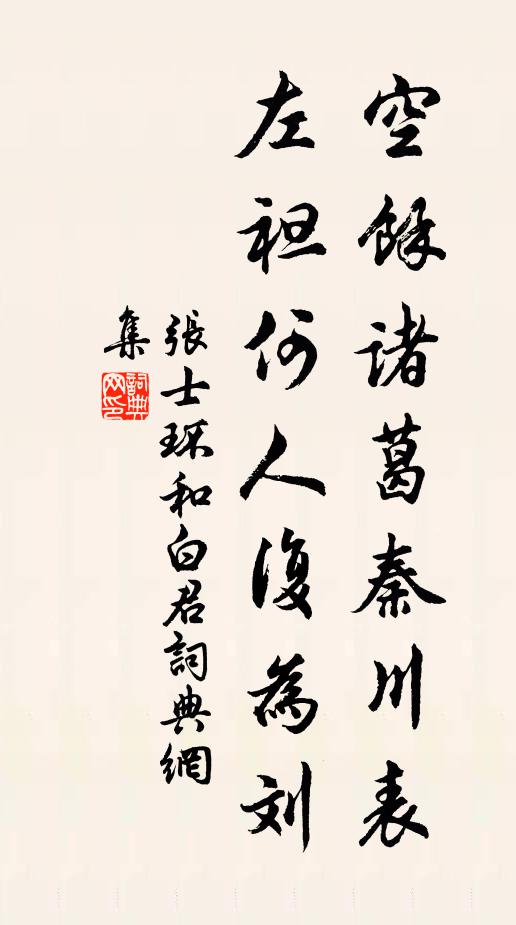 空餘诸葛秦川表
左袒何人復為刘
張士环和白君詞典網
集
詞典
网印